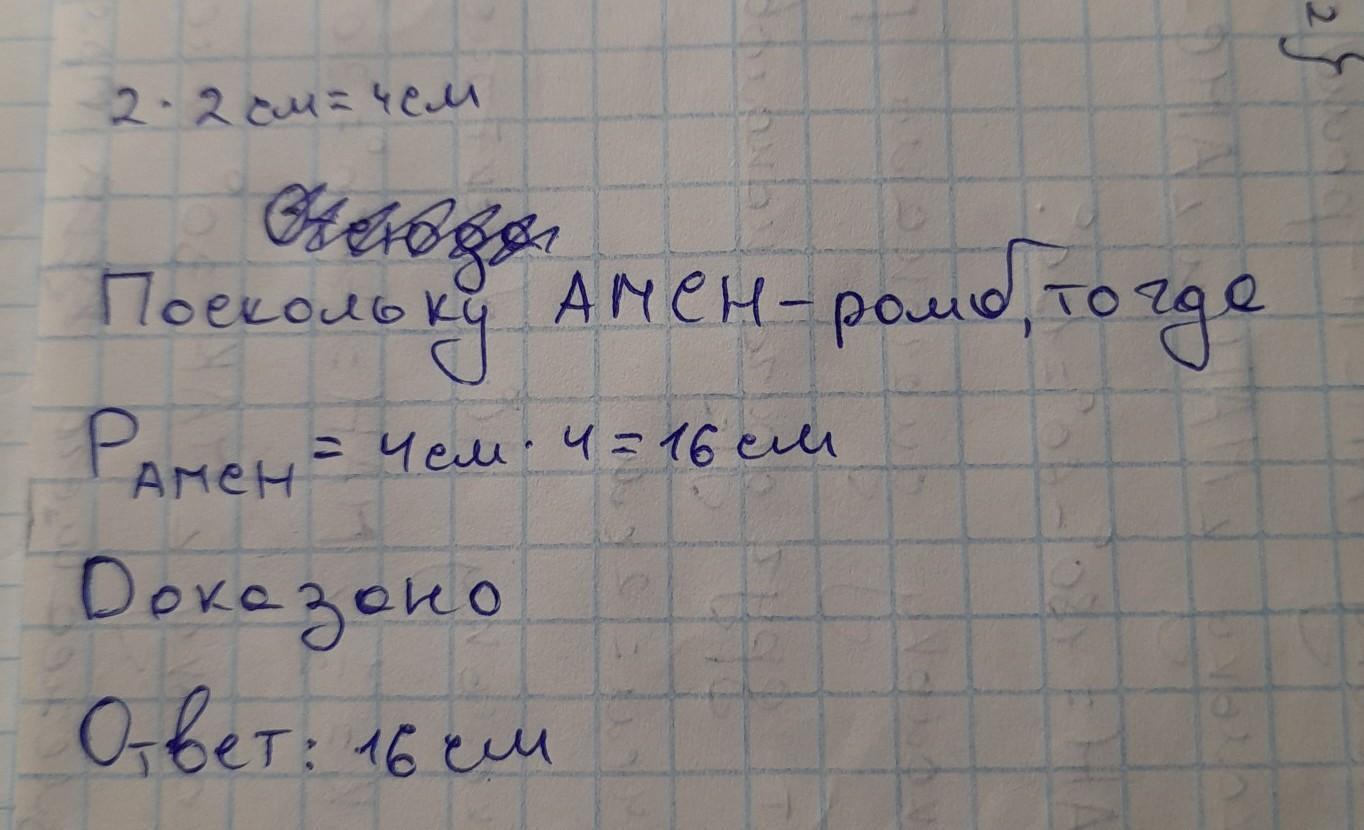 2 · 2 см = 4 см
Поскольку АМСН - ромб, тогда
P АМСН = 4 см · 4 = 16 см
Доказано
Ответ: 16 см